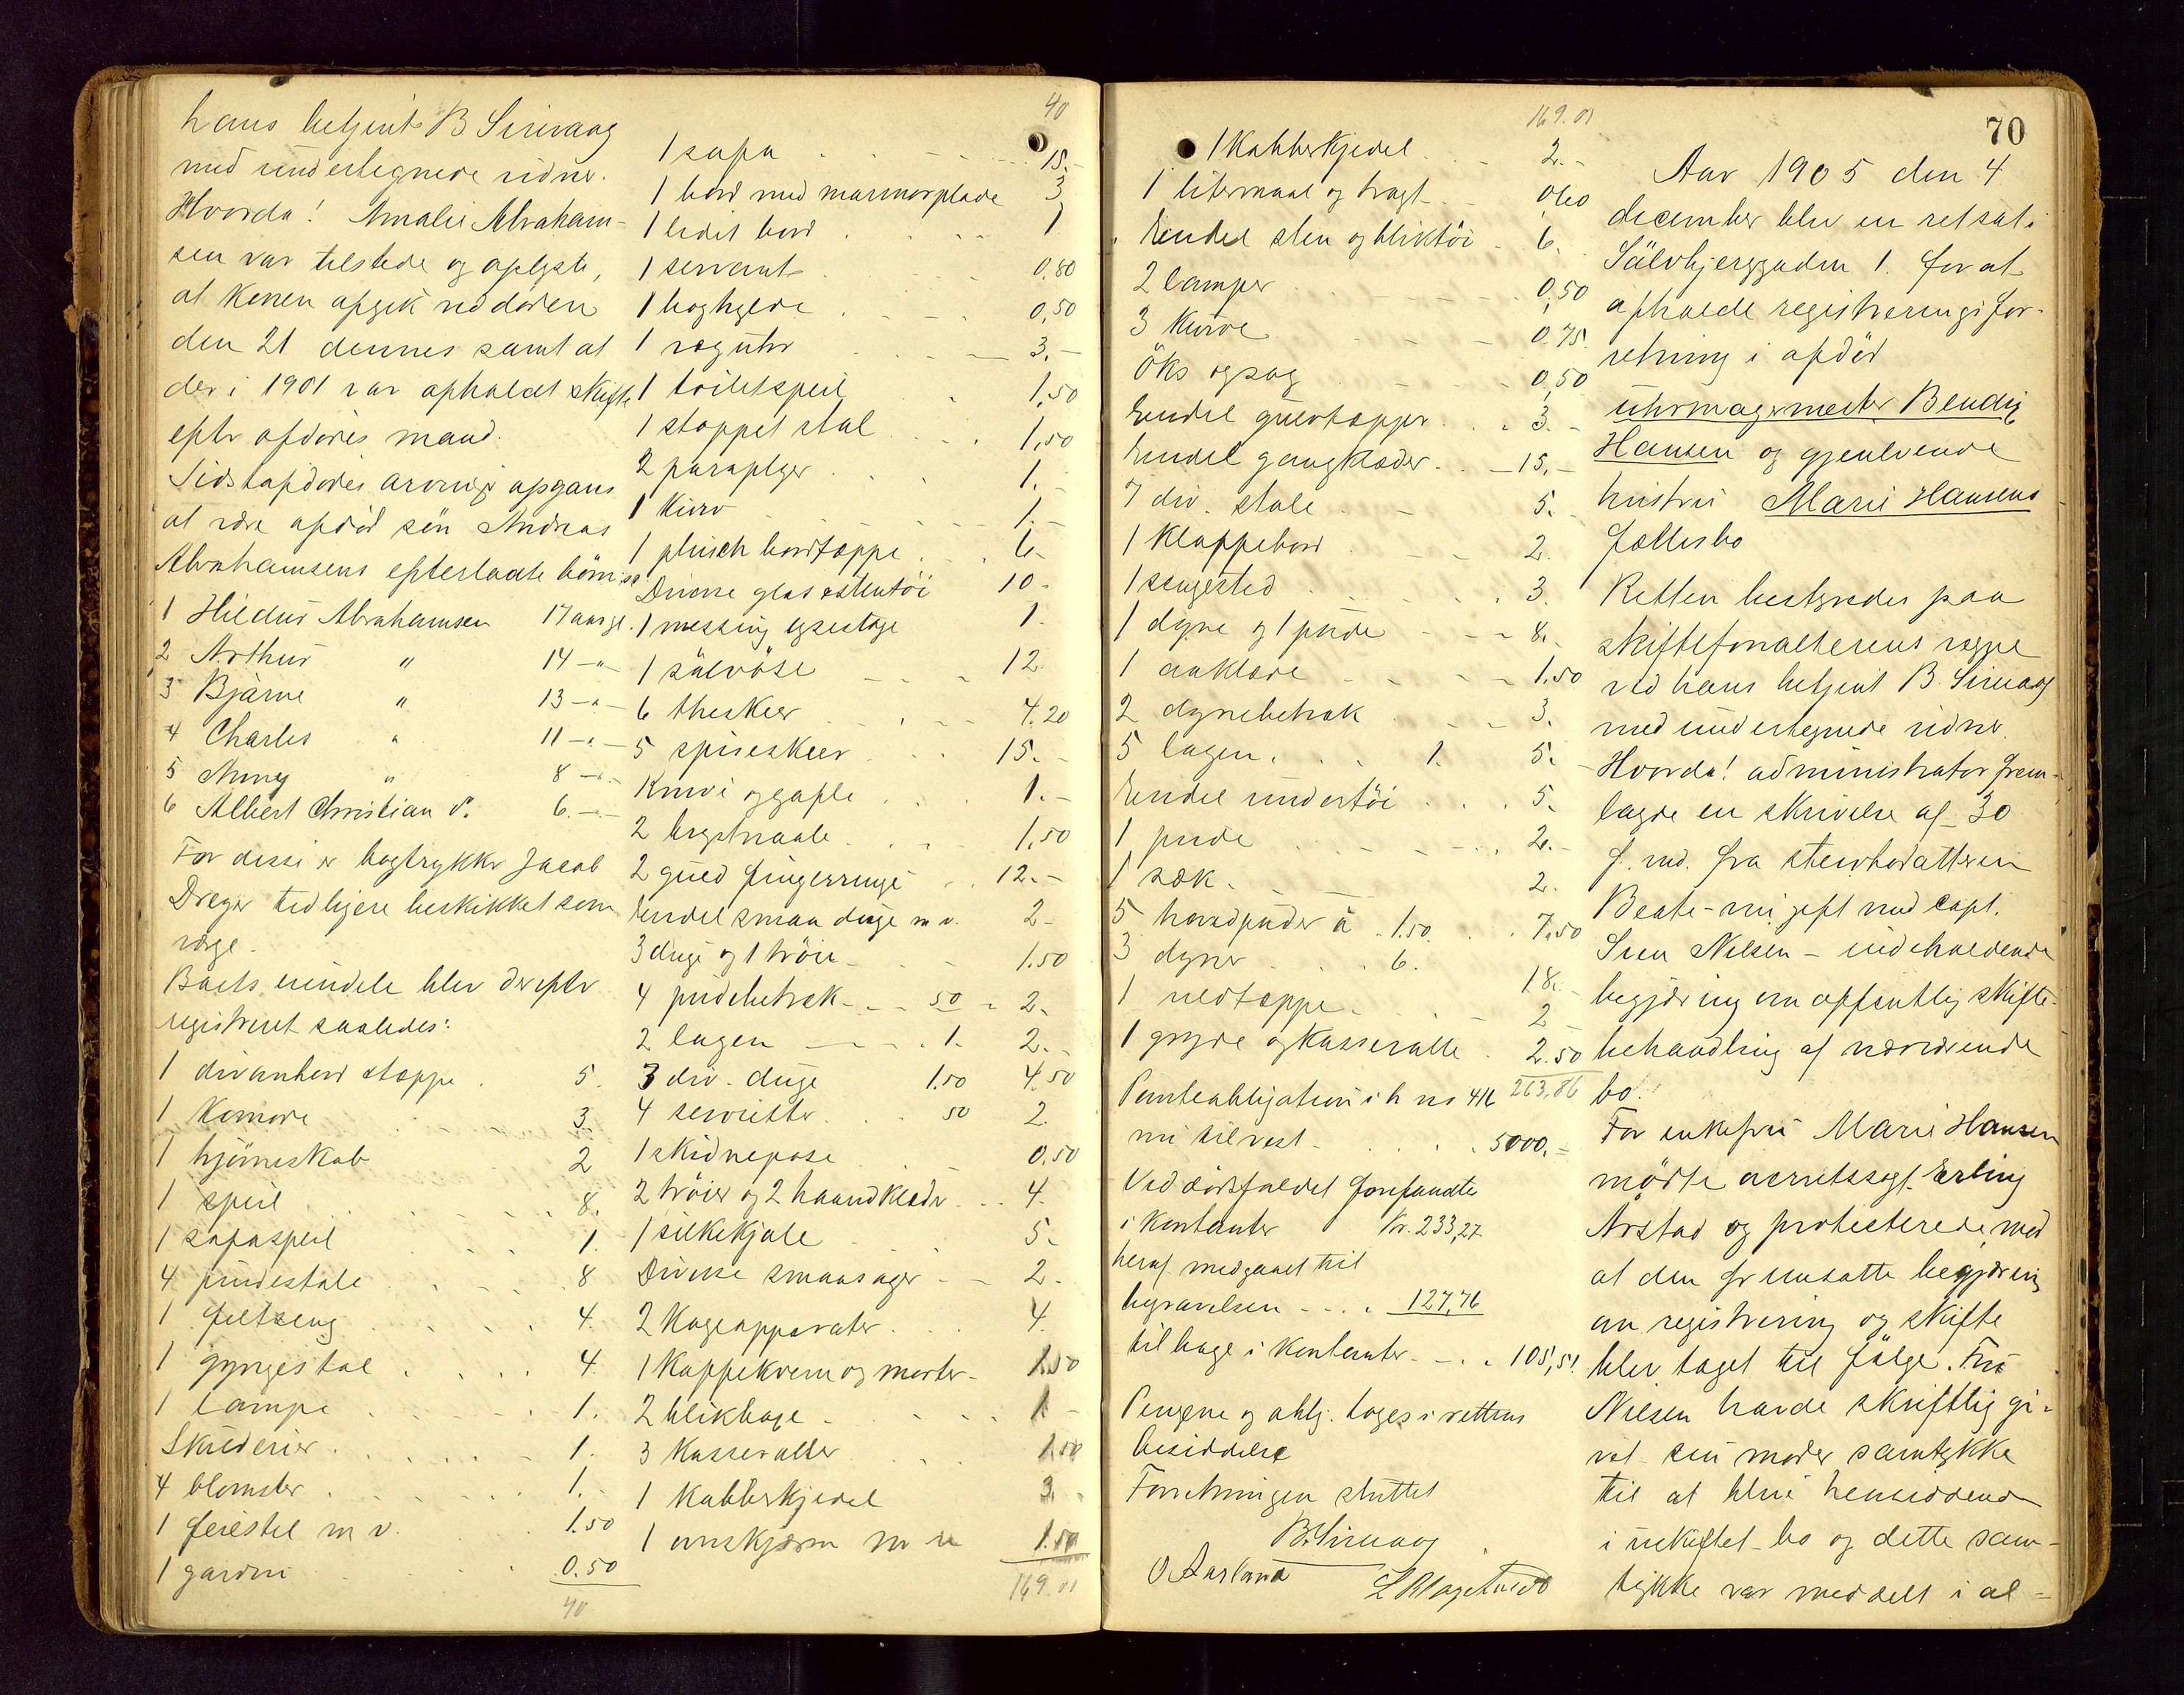 hans betjent B Sirevaag
med undertegnede vidner.
Hvorda! Amalie Abraham-
sen var tilstede og oplyste,
at konen afgik ved døden
den 21 dennes samt at
der i 1901 var afholdt skifte
efter afdødes mand.
Sidstafdødes arvinge opgaves
at være afdød søn Andreas
Abrahamsens efterladte børn
1 Hildur Abrahamsen 17 aar gl.
2 Arthur " 14 -"-
3 Bjarne " 13 -"-
4 Charles " 11 -"-
5 Anny " 8 -"-
6 Albert Christian d. 6. -"-
For disse er bogtrykker Jacob
Dreyer tidligere beskikket som
værge.
Boets eiendele blev derefter
registreret saaledes:
1 divanbord stoppe . 5.
1 Komode 3.
1 hjørneskab 2
1 speil 8.
1 sofaspeil 1.
4 pindestole 8
1 feltseng 4.
1 gyngestol 4.
1 lampe 1.
Skilderier 1.
4 blomster 1.
1 feiestel m v. 1.50
1 gardin 0.50
40
40
1 sofa 15.-
1 bord med marmorplade 3
1 lidit bord 1
1 servant 0,80
1 boghylde 0,50
1 væguhr 3.-
1 toiletspeil 1,50
1 stoppet stol 1,50
2 paraplyer 1.-
1 Kurv 1.-
1 plusch bordtæppe 6.-
Diverse glas & stentøi 10-
1 messing lysestage 1.
1 sølvøse 12.
6 theskeer 4.20
5 spiseskeer 15.-
Knive og gafle 1.-
2 brystnaale 1,50
2 guld fingerringe 12.-
Endel smaa duge m v. 2-
3 duge og 1 trøie 1.50
4 pudebetræk 50 2.
2 lagen 1. 2.-
3 div. duge 1.50 4.50
4 servietter 50 2.
1 skidnepose 0.50
2 trøier og 2 haandklæder 4.
1 silkekjole 5-
Diverse smaasager 2.
2 Kogeapparater 4.
1 Kaffekvern og morter 1.50
2 blikbage 1 -
3 Kasseroller 1.50
1 Kobberkjedel 3.
1 ovnskjærm m v 1.50
169.01
169.01
1 Kobberkjedel 2.-
1 litermaal og tragt 0,60
Endel sten og bliktøi 6.
2 lamper 0,50
3 Kurve 0.75
øks og sag 0,50
Endel gulvtæpper 3.-
Endel gangklæder 15.-
7 div. stole 5.
1 Klappebord 2.
1 sengested 3.
1 dyne og 1 pude 8.
1 aaklæde 1.50
2 dynebetræk 3.
5 lagen 1. 5.
Endel undertøi 5.
1 pude 2.-
1 sæk 2.
5 hovedpuder à 1.50 7,50
3 dyner 6. 18.-
1 uldtæppe 2-
1 gryde og Kasserolle 2.50
263,86
Panteobligation i h no 416
nu tilrest 5000.=
Ved dødsfaldet forefandtes
i Kontanter Kr. 233,27
heraf medgaaet til
begravelsen 127,76
tilbage i Kontanter 105,51
Pengene og oblg. toges i rettens
besiddelse
Forretningen sluttet
B. Sirevaag
O Aasland
70
Aar 1905 den 4
december blev en ret sat i
Sølvbjerggaden 1. for at
afholde registreringsfor-
retning i afdød
uhrmagermester Bendix
Hansen og gjenlevende
hustru Marie Hansens
fællesbo
Retten bestyredes paa
skifteforvalterens vegne
ved hans betjent B. Sirevaag
med undertegnede vidner.
Hvorda! administrator frem-
lagde en skrivelse af 30
f. md. fra steddatteren
Beate - nu gift med capt.
Sven Nilsen - indeholdende
begjæring om offentlig skifte-
behandling af nærværende
bo.
For enkefru Marie Hansen
mødte overretssagf. Erling
Årstad og protesterede mod
at den fremsatte begjæring
om registrering og skifte
blev taget til følge. Fru
Nilsen havde skriftlig gi-
vet sin moder samtykke
til at blive hensiddende
i uskiftet bo og dette sam-
tykke var meddelt i al=